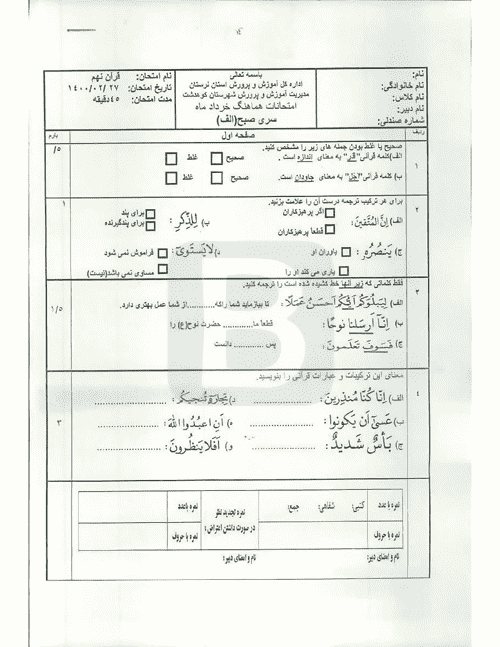 باسمه تعالی
نام:
نام خانوادگی:
نام کلاس:
نام دبیر:
شماره صندلی:
اداره کل آموزش و پرورش استان لرستان
مدیریت آموزش و پرورش شهرستان کوهدشت
امتحانات هماهنگ خرداد ماه
سری صبح(الف)
نام امتحان: قرآن نهم
تاریخ امتحان: ۱۴۰۰/۰۲/۲۷
مدت امتحان: ۴۵دقیقه
ردیف صفحه اول بارم
۱ صحیح یا غلط بودن جمله های زیر را مشخص کنید. /۵
الف)کلمه قرآنی"قَدَر" به معنای اندازه است . صحیح غلط
ب) کلمه قرآنی" به معنای جاودان است. صحیح غلط
۲ برای هر ترکیب ترجمه درست آن را علامت بزنید. ۱
الف) إِنَّ المُتَّقينَ: اگر پرهیزکاران قطعاً پرهیزکاران
ب) لِلذِّكرِ: برای پند برای پندگیرنده
ج) يَنصُرُهُ: یاوران او یاری می کند او را
د) لا يَستَوى: فراموش نمی شود مساوی نمی باشد(نیست)
۳ فقط کلماتی که زیر آنها خط کشیده شده است را ترجمه کنید. ۱/۵
الف) لِيَبلُوَكُم أَيُّكُم أَحسَنُ عَمَلًا: تا بیازماید شما راکه...........از شما عمل بهتری دارد.
ب) إِنّا أَرسَلنا نوحًا: قطعاً ما............ حضرت نوح(ع) را
ج) فَسَوفَ تَعلَمونَ: پس ............. دانست
۴ معنای این ترکیبات و عبارات قرآنی را بنویسید. ۳
الف) إِنّا كُنّا مُنذِرينَ: ........................ د) تِجارَةٍ تُنجيكُم: ........................
ب) عَسىٰ أَن يَكونوا: ........................ ه) أَنِ اعبُدُوا اللهَ: ........................
ج) بَأسٌ شَديدٌ: ........................ و) أَفَلا يَنظُرونَ: ........................
نمره با عدد کتبی: شفاهی: جمع: نمره تجدید نظر نمره با عدد
در صورت داشتن اعتراض:
نمره با حروف نمره با حروف
نام و امضای دبیر: نام و امضای دبیر:
B